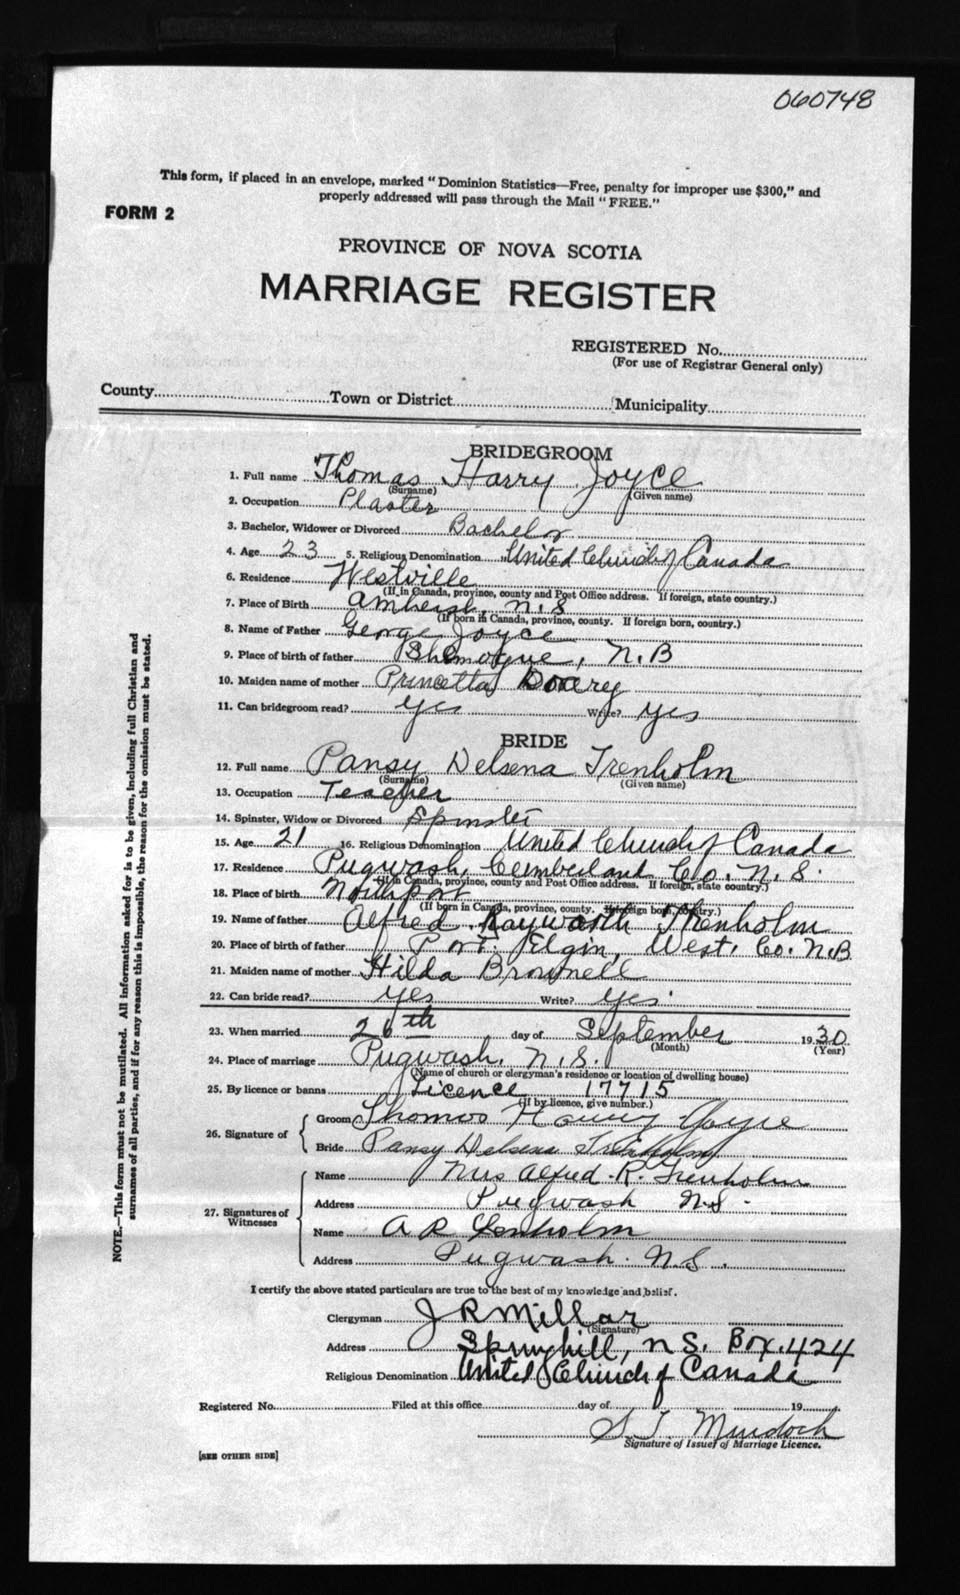 060748
This form, if placed in an envelope, marked "Dominion Statistics—Free, penalty for improper use $300," and
properly addressed will pass through the Mail "FREE."
FORM 2
PROVINCE OF NOVA SCOTIA
MARRIAGE REGISTER
REGISTERED No.
(For use of Registrar General only)
County Town or District Municipality
BRIDEGROOM
1. Full name Thomas Harry Joyce
(Surname) (Given name)
2. Occupation Plaster
3. Bachelor, Widower or Divorced Bachelor
4. Age 23 5. Religious Denomination United Church of Canada
6. Residence Westville
(If in Canada, province, county and Post Office address. If foreign, state country.)
7. Place of Birth Amherst, N.S
(If born in Canada, province, county. If foreign born, country.)
8. Name of Father George Joyce
9. Place of birth of father Shemogue, N.B
10. Maiden name of mother Princetta
11. Can bridegroom read? yes Write? yes
BRIDE
12. Full name Pansy Delsena Trenholm
(Surname) (Given name)
13. Occupation Teacher
14. Spinster, Widow or Divorced Spinster
15. Age 21 16. Religious Denomination United Church of Canada
17. Residence Pugwash, Cumberland Co. N.S.
(If in Canada, province, county and Post Office address. If foreign, state country.)
18. Place of birth Northport
(If born in Canada, province, county. If foreign born, country.)
19. Name of father Alfred Rayworth Trenholm
20. Place of birth of father Port Elgin, West. Co. N.B
21. Maiden name of mother Hilda Brownell
22. Can bride read? yes Write? yes
23. When married 26th day of September 1930
(Month) (Year)
24. Place of marriage Pugwash, N.S.
(Name of church or clergyman's residence or location of dwelling house)
25. By licence or banns Licence 17715
(If by licence, give number.)
26. Signature of { Groom Thomas Harry Joyce
Bride Pansy Delsena Trenholm
27. Signatures of Witnesses { Name Mrs Alfred R. Trenholm
Address Pugwash N.S.
Name A R Trenholm
Address Pugwash. N.S.
I certify the above stated particulars are true to the best of my knowledge and belief.
Clergyman J R Millar
(Signature)
Address Springhill, N.S. Box. 424
Religious Denomination United Church of Canada
Registered No. Filed at this office day of 19
S. T. Murdoch
Signature of Issuer of Marriage Licence.
[SEE OTHER SIDE]
NOTE.—This form must not be mutilated. All information asked for is to be given, including full Christian and
surnames of all parties, and if for any reason this is impossible, the reason for the omission must be stated.